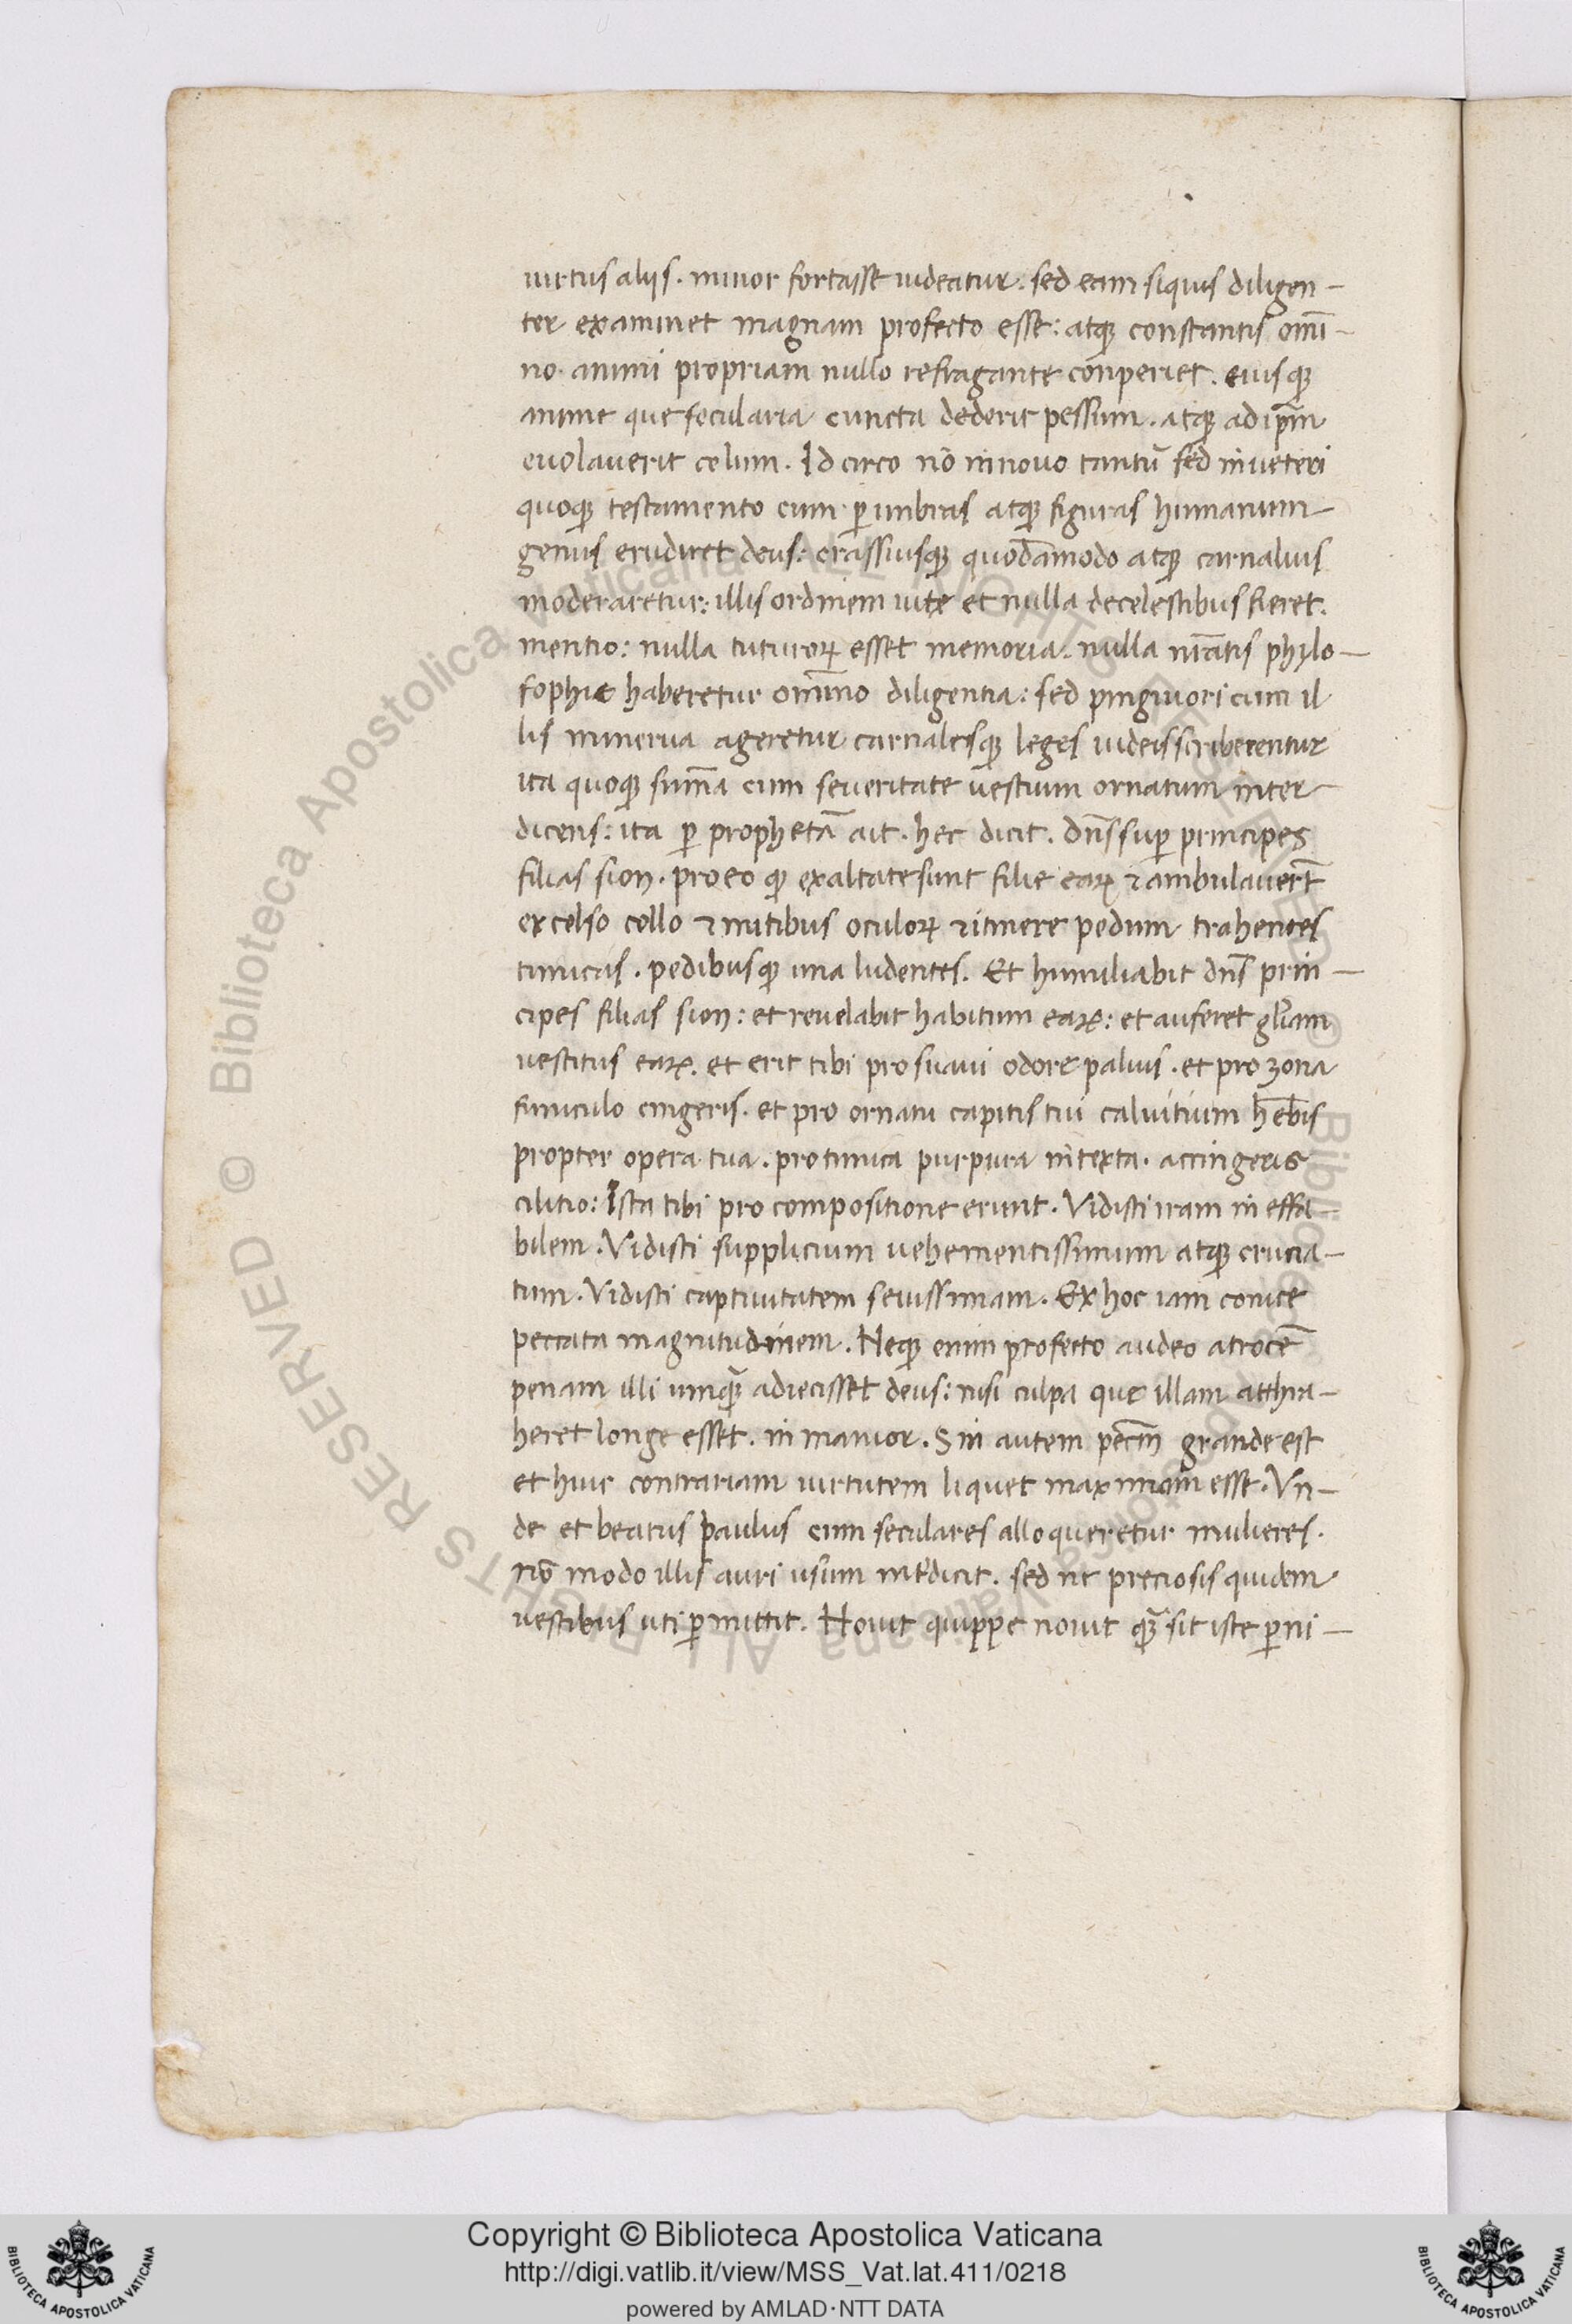 uirtus aliis. minor fortasse uideatur: sed eam siquis diligen-
ter examinet magnam profecto esse: atqȝ constantis om̄i-
no animi propriam nullo refragante conperiet. eiusqȝ
anime que secularia cuncta dederit pessum. atqȝ ad ip̄m
euolauerit celum. Id circo nō in nouo tantū sed in ueteri
quoqȝ testamento cum ꝑ umbras atqȝ figuras humanum
genus erudiret deus: crassiusqȝ quodāmodo atqȝ carnalius
moderaretur: illis ordinem uite et nulla de celestibus fieret.
mentio: nulla tuturoꝝ esset memoria. nulla nr̄atis phylo-
sophie haberetur om̄ino diligentia: sed pinguiori cum il
lis minerua ageretur carnalesqȝ leges iudeis scriberentur
ita quoqȝ sum̄a cum seueritate uestium ornatum inter
dicens: ita ꝑ prophetā ait. hec dicit. dn̄s suꝑ principes
filias sion. pro eo qȝ exaltate sunt filie eaꝝ ⁊ ambulauerт̄
excelso collo ⁊ nutibus oculoꝝ ⁊ itinere pedum trahentes
tunicas. pedibusqȝ una ludentes. Et humiliabit dn̄s prin-
cipes filias sion: et reuelabit habitum eaꝝ: et auferet gl̄iam
uestitus eaꝝ. et erit tibi pro suaui odore paluis. et pro zona
funiculo cingeris. et pro ornatu capitis tui caluitium heb̄is
propter opera tua. pro tunica purpura intexta. accingeris
cilitio: Ista tibi pro compositione erunt. Vidisti iram in effa-
bilem. Vidisti supplicium uehementissimum atqȝ crucia-
tum. Vidisti captiuitatem seuissimam. Ex hoc iam conice
peccata magnitudinem. Neqȝ enim profecto audeo atrocē
penam illi unqȝ̄ adiecisset deus: nisi culpa que illam atthra-
heret longe esset. in manior. Sin autem pec̄m grande est
et huic contrariam uirtutem liquet maximam esse. Vn-
de et beatus paulus cum seculares alloqueretur mulieres.
nō modo illis auri usum int̄dicit. sed ne preciosis quidem
uestibus uti ꝑmittit. Nouit quippe nouit qȝ̄ sit iste ꝑni-
Copyright © Biblioteca Apostolica Vaticana
http://digi.vatlib.it/view/MSS_Vat.lat.411/0218
powered by AMLAD·NTT DATA